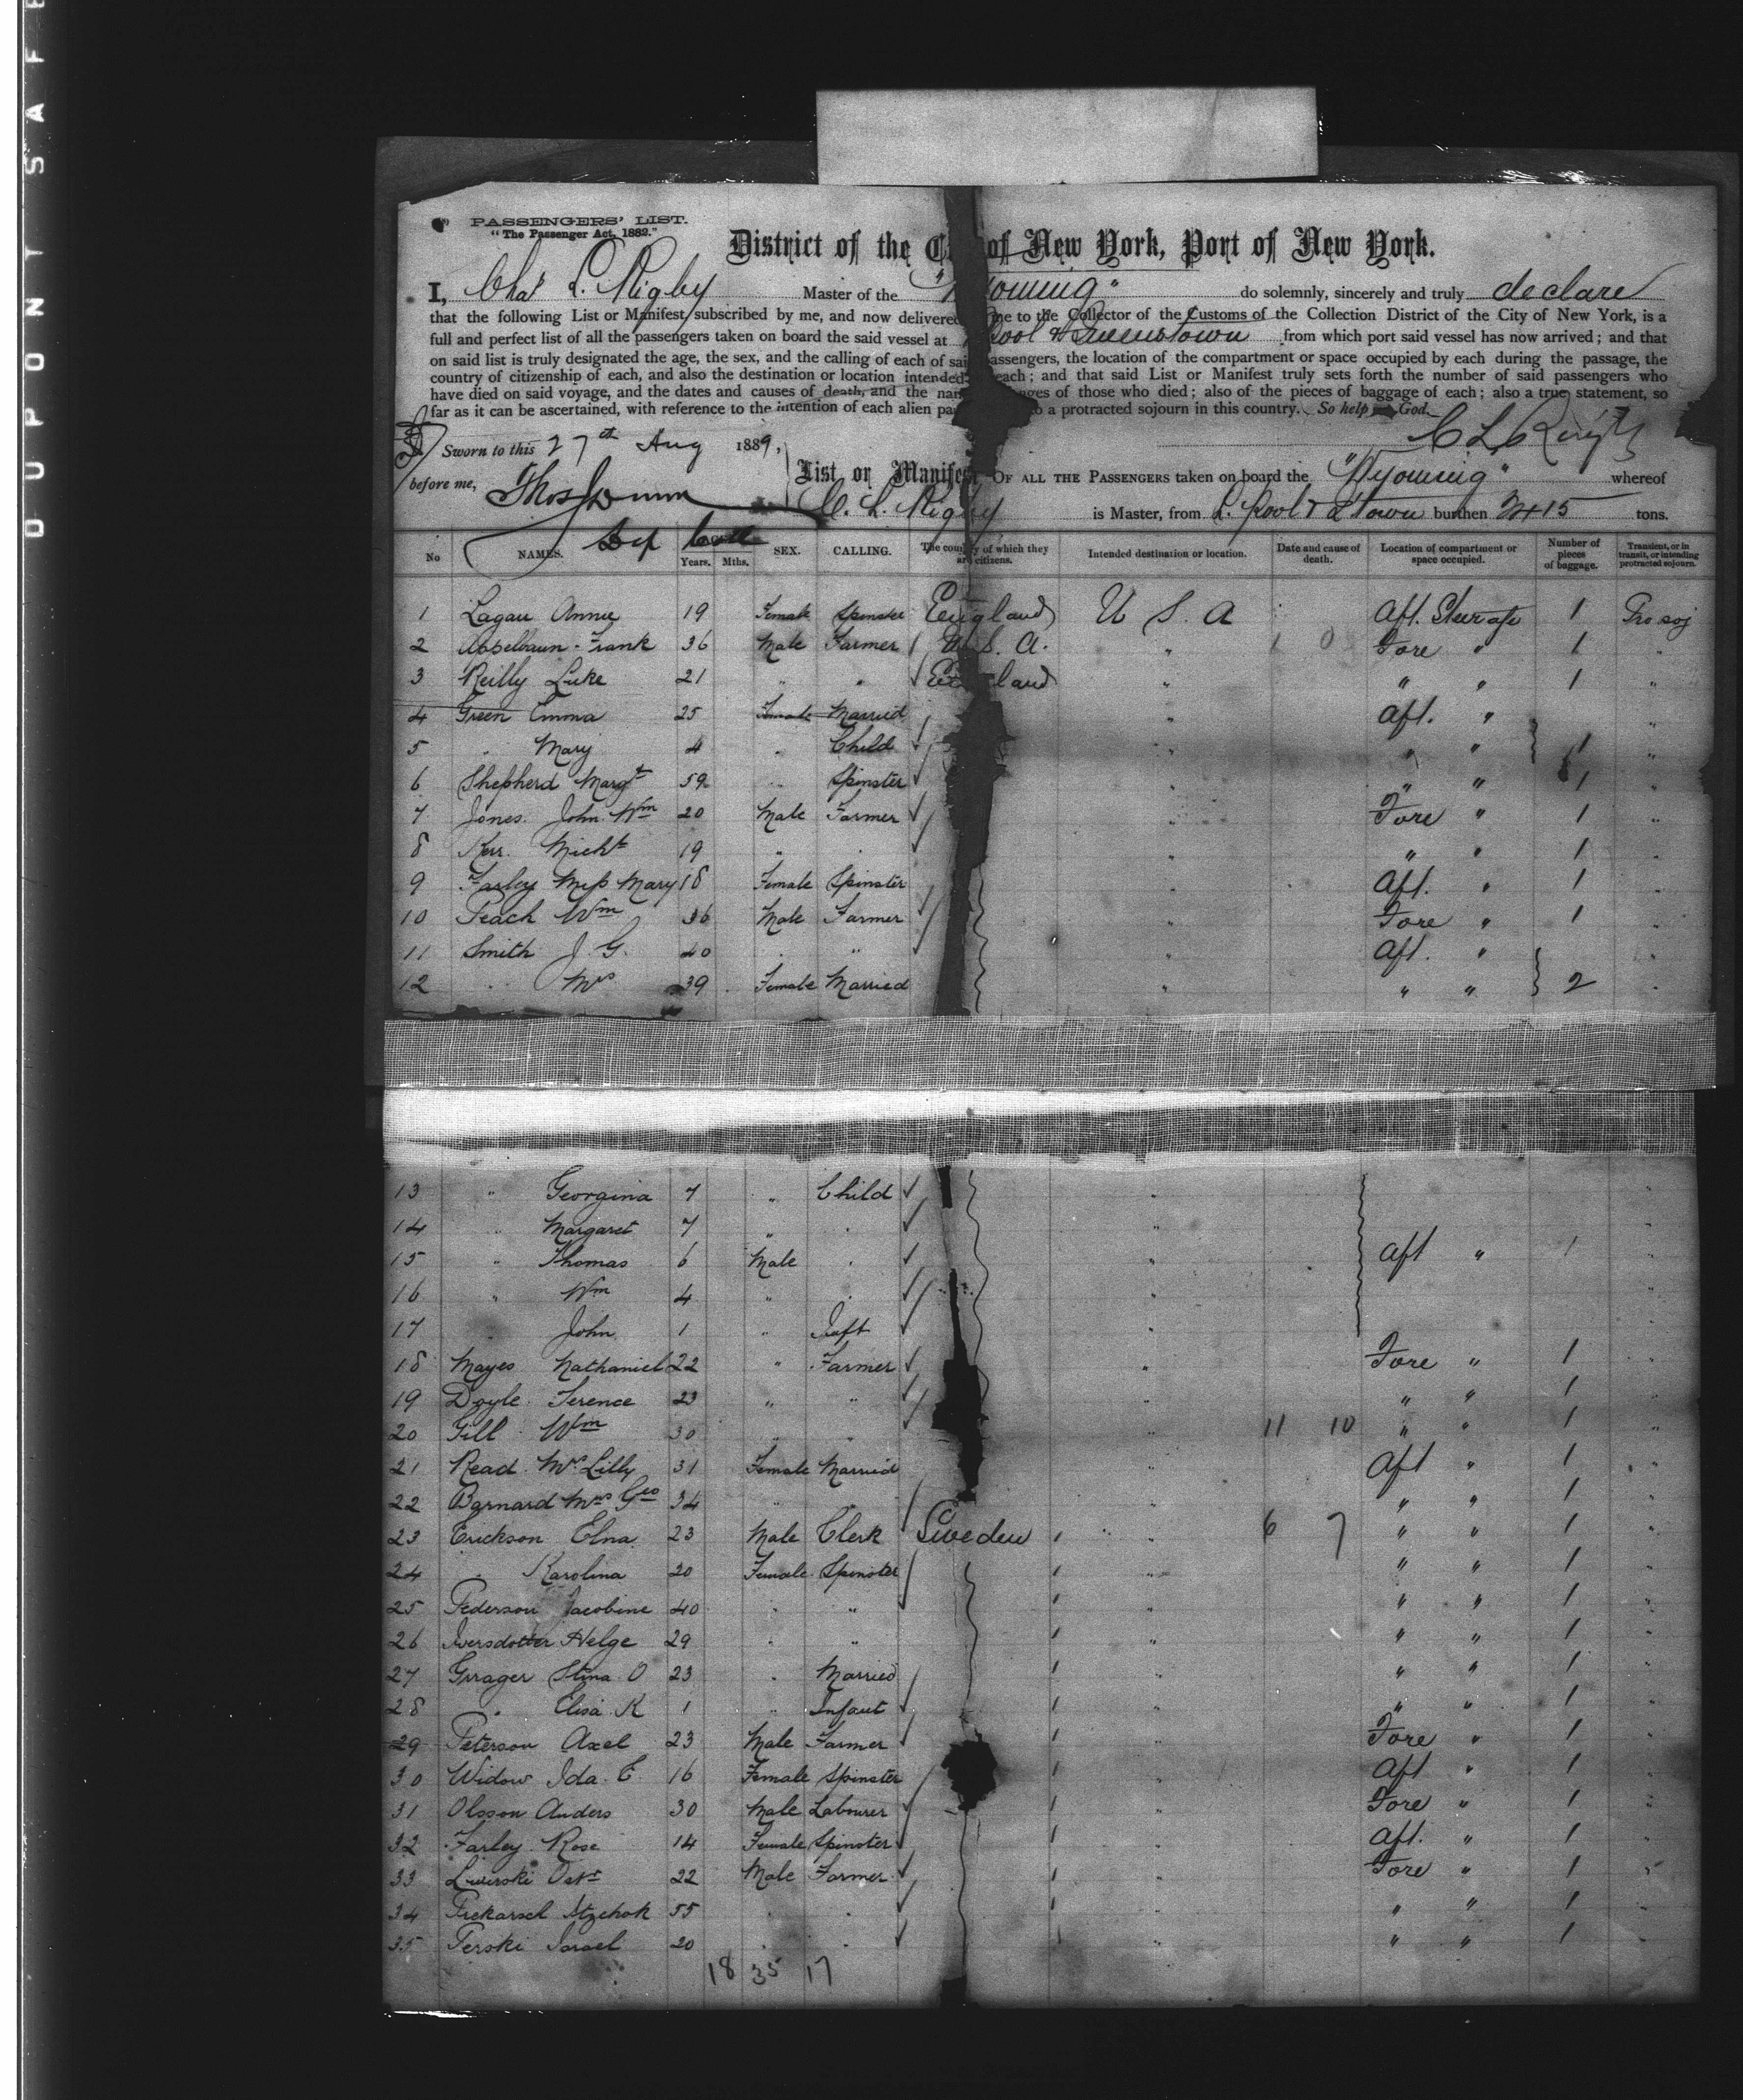 DUPONT SAF
PASSENGERS' LIST.
"The Passenger Act, 1882."
District of the C of New York, Port of New York.
I, Chas L. Rigby Master of the "yoming" do solemnly, sincerely and truly declare
that the following List or Manifest subscribed by me, and now delivered me to the Collector of the Customs of the Collection District of the City of New York, is a
full and perfect list of all the passengers taken on board the said vessel at pool & Queenstown from which port said vessel has now arrived; and that
on said list is truly designated the age, the sex, and the calling of each of said assengers, the location of the compartment or space occupied by each during the passage, the
country of citizenship of each, and also the destination or location intended each; and that said List or Manifest truly sets forth the number of said passengers who
have died on said voyage, and the dates and causes of death, and the nam ages of those who died; also of the pieces of baggage of each; also a true statement, so
far as it can be ascertained, with reference to the intention of each alien pas o a protracted sojourn in this country. So help me God.
C L Rigby
Sworn to this 27th Aug 1889,
before me, Thos Dunn
Dep Coll
List or Manifest OF ALL THE PASSENGERS taken on board the "Wyoming" whereof
C. L. Rigby is Master, from L.pool & Q Town burthen 2415 tons.
No NAMES. Years. Mths. SEX. CALLING. The country of which they are citizens. Intended destination or location. Date and cause of death. Location of compartment or space occupied. Number of pieces of baggage. Transient, or in transit, or intending protracted sojourn.
1 Lagau Annie 19 Female Spinster England U S. A Aft. Steerage 1 Pro soj
2 Abselbaun Frank 36 Male Farmer U.S. A. " 1 0 Fore " 1 "
3 Reilly Luke 21 " " England " " " 1 "
4 Green Emma 25 Female Married " Aft. " "
5 " Mary 4 " Child " " " 1 "
6 Shepherd Margt 59 " Spinster " " " 1 "
7 Jones. John Wm 20 Male Farmer " Fore " 1 "
8 Kerr. Micht 19 " " " " " 1 "
9 Farley Miss Mary 18 Female Spinster " Aft. " 1 "
10 Peach Wm 36 Male Farmer " Fore " 1 "
11 Smith J. G. 40 " " " Aft. " "
12 " Mrs 39 Female Married " " " 2 "
13 " Georgina 7 " Child " "
14 " Margaret 7 " " " "
15 " Thomas 6 Male " " Aft " 1 "
16 " Wm 4 " " " "
17 " John 1 " Inft " "
18 Mayes Nathaniel 22 " Farmer " Fore " 1 "
19 Doyle Terence 23 " " " " " 1 "
20 Gill Wm 30 " " " 11 10 " " 1 "
21 Read Mrs Lilly 31 Female Married " Aft " 1 "
22 Barnard Mrs Geo 34 " " " " " 1 "
23 Erickson Elna 23 Male Clerk Sweden " 6 7 " " 1 "
24 " Karolina 20 Female Spinster " " " 1 "
25 Pederson Jacobine 40 " " " " " 1 "
26 Iversdotter Helge 29 " " " " " 1 "
27 Grager Stina O 23 " Married " " " 1 "
28 " Elisa K 1 " Infant " " " 1 "
29 Peterson Axel 23 Male Farmer " Fore " 1 "
30 Widow Ida C 16 Female Spinster " Aft " 1 "
31 Olsson Anders 30 Male Labourer " Fore " 1 "
32 Farley Rose 14 Female Spinster " Aft. " 1 "
33 22 Male Farmer " Fore " 1 "
34 Piekarsch Itzchok 55 " " " " " 1 "
35 Perski Israel 20 " " " " " 1 "
18 35 17